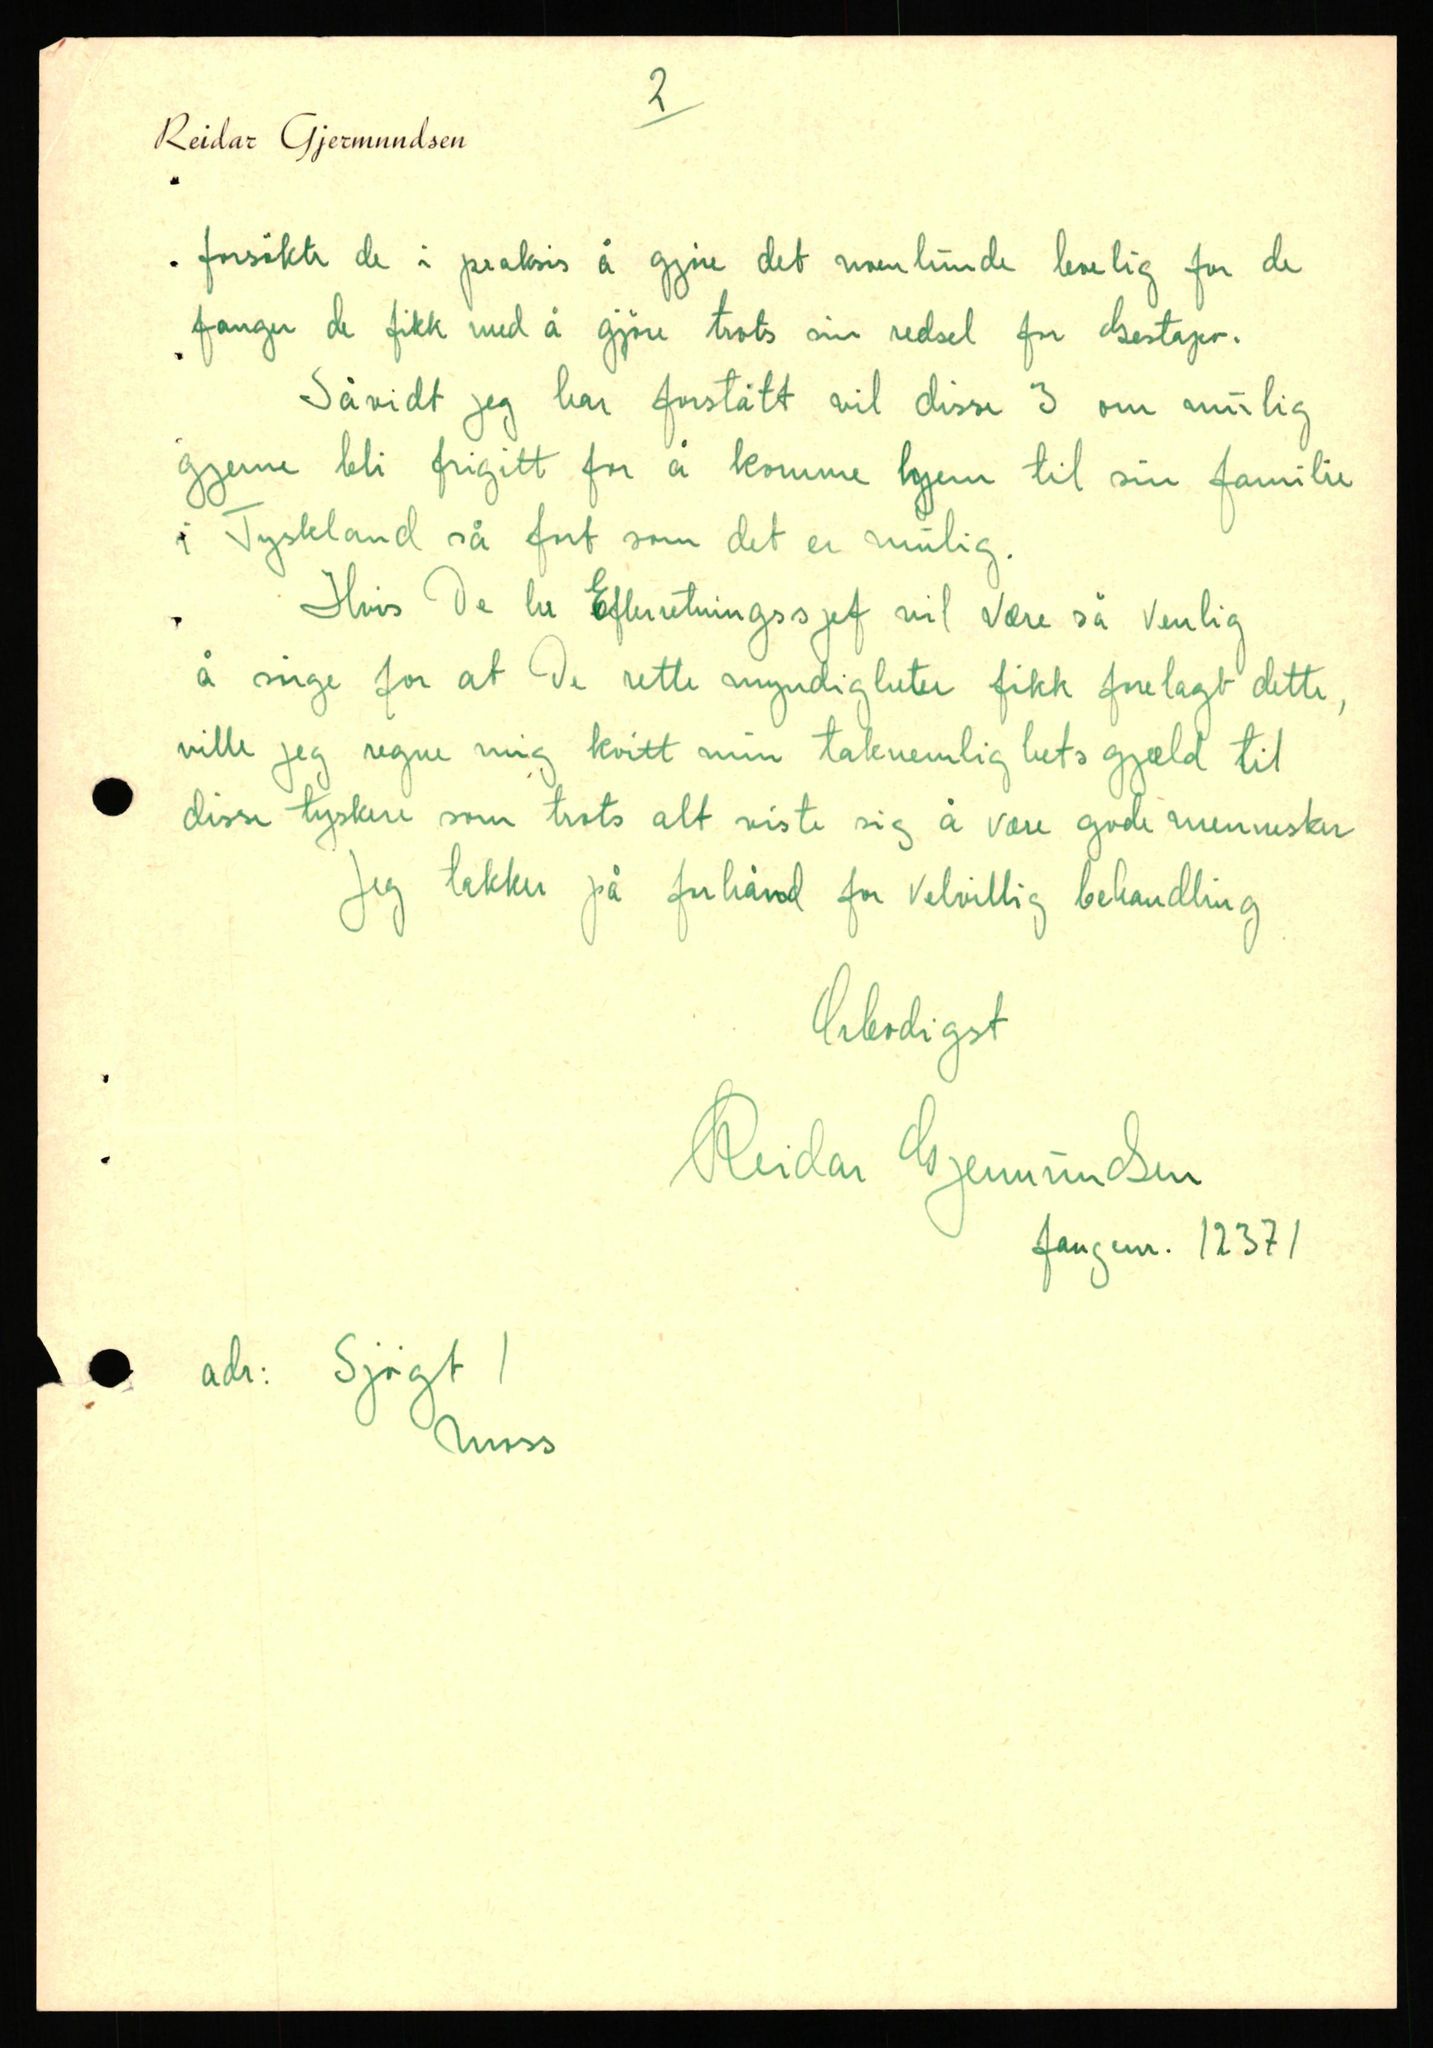 2
Reidar Gjermundsen
forsökte de i praksis å gjöre det noenlunde levelig for de
fanger de fikk med å gjöre trots sin redsel for Gestapo.
Såvidt jeg har forstått vil disse 3 om mulig
gjerne bli frigitt for å komme hjem til sin familie
i Tyskland så fort som det er mulig.
Hvis De hr Efterretningssjef vil være så venlig
å sörge for at De rette myndigheter fikk forelagt dette,
ville jeg regne mig kvitt min taknemlighets gjæld til
disse tyskere som trots alt viste sig å være gode mennesker
Jeg takker på forhånd for velvillig behandling
Erbodigst
Reidar Gjermundsen
fangenr. 12371
adr: Sjögt 1
Moss